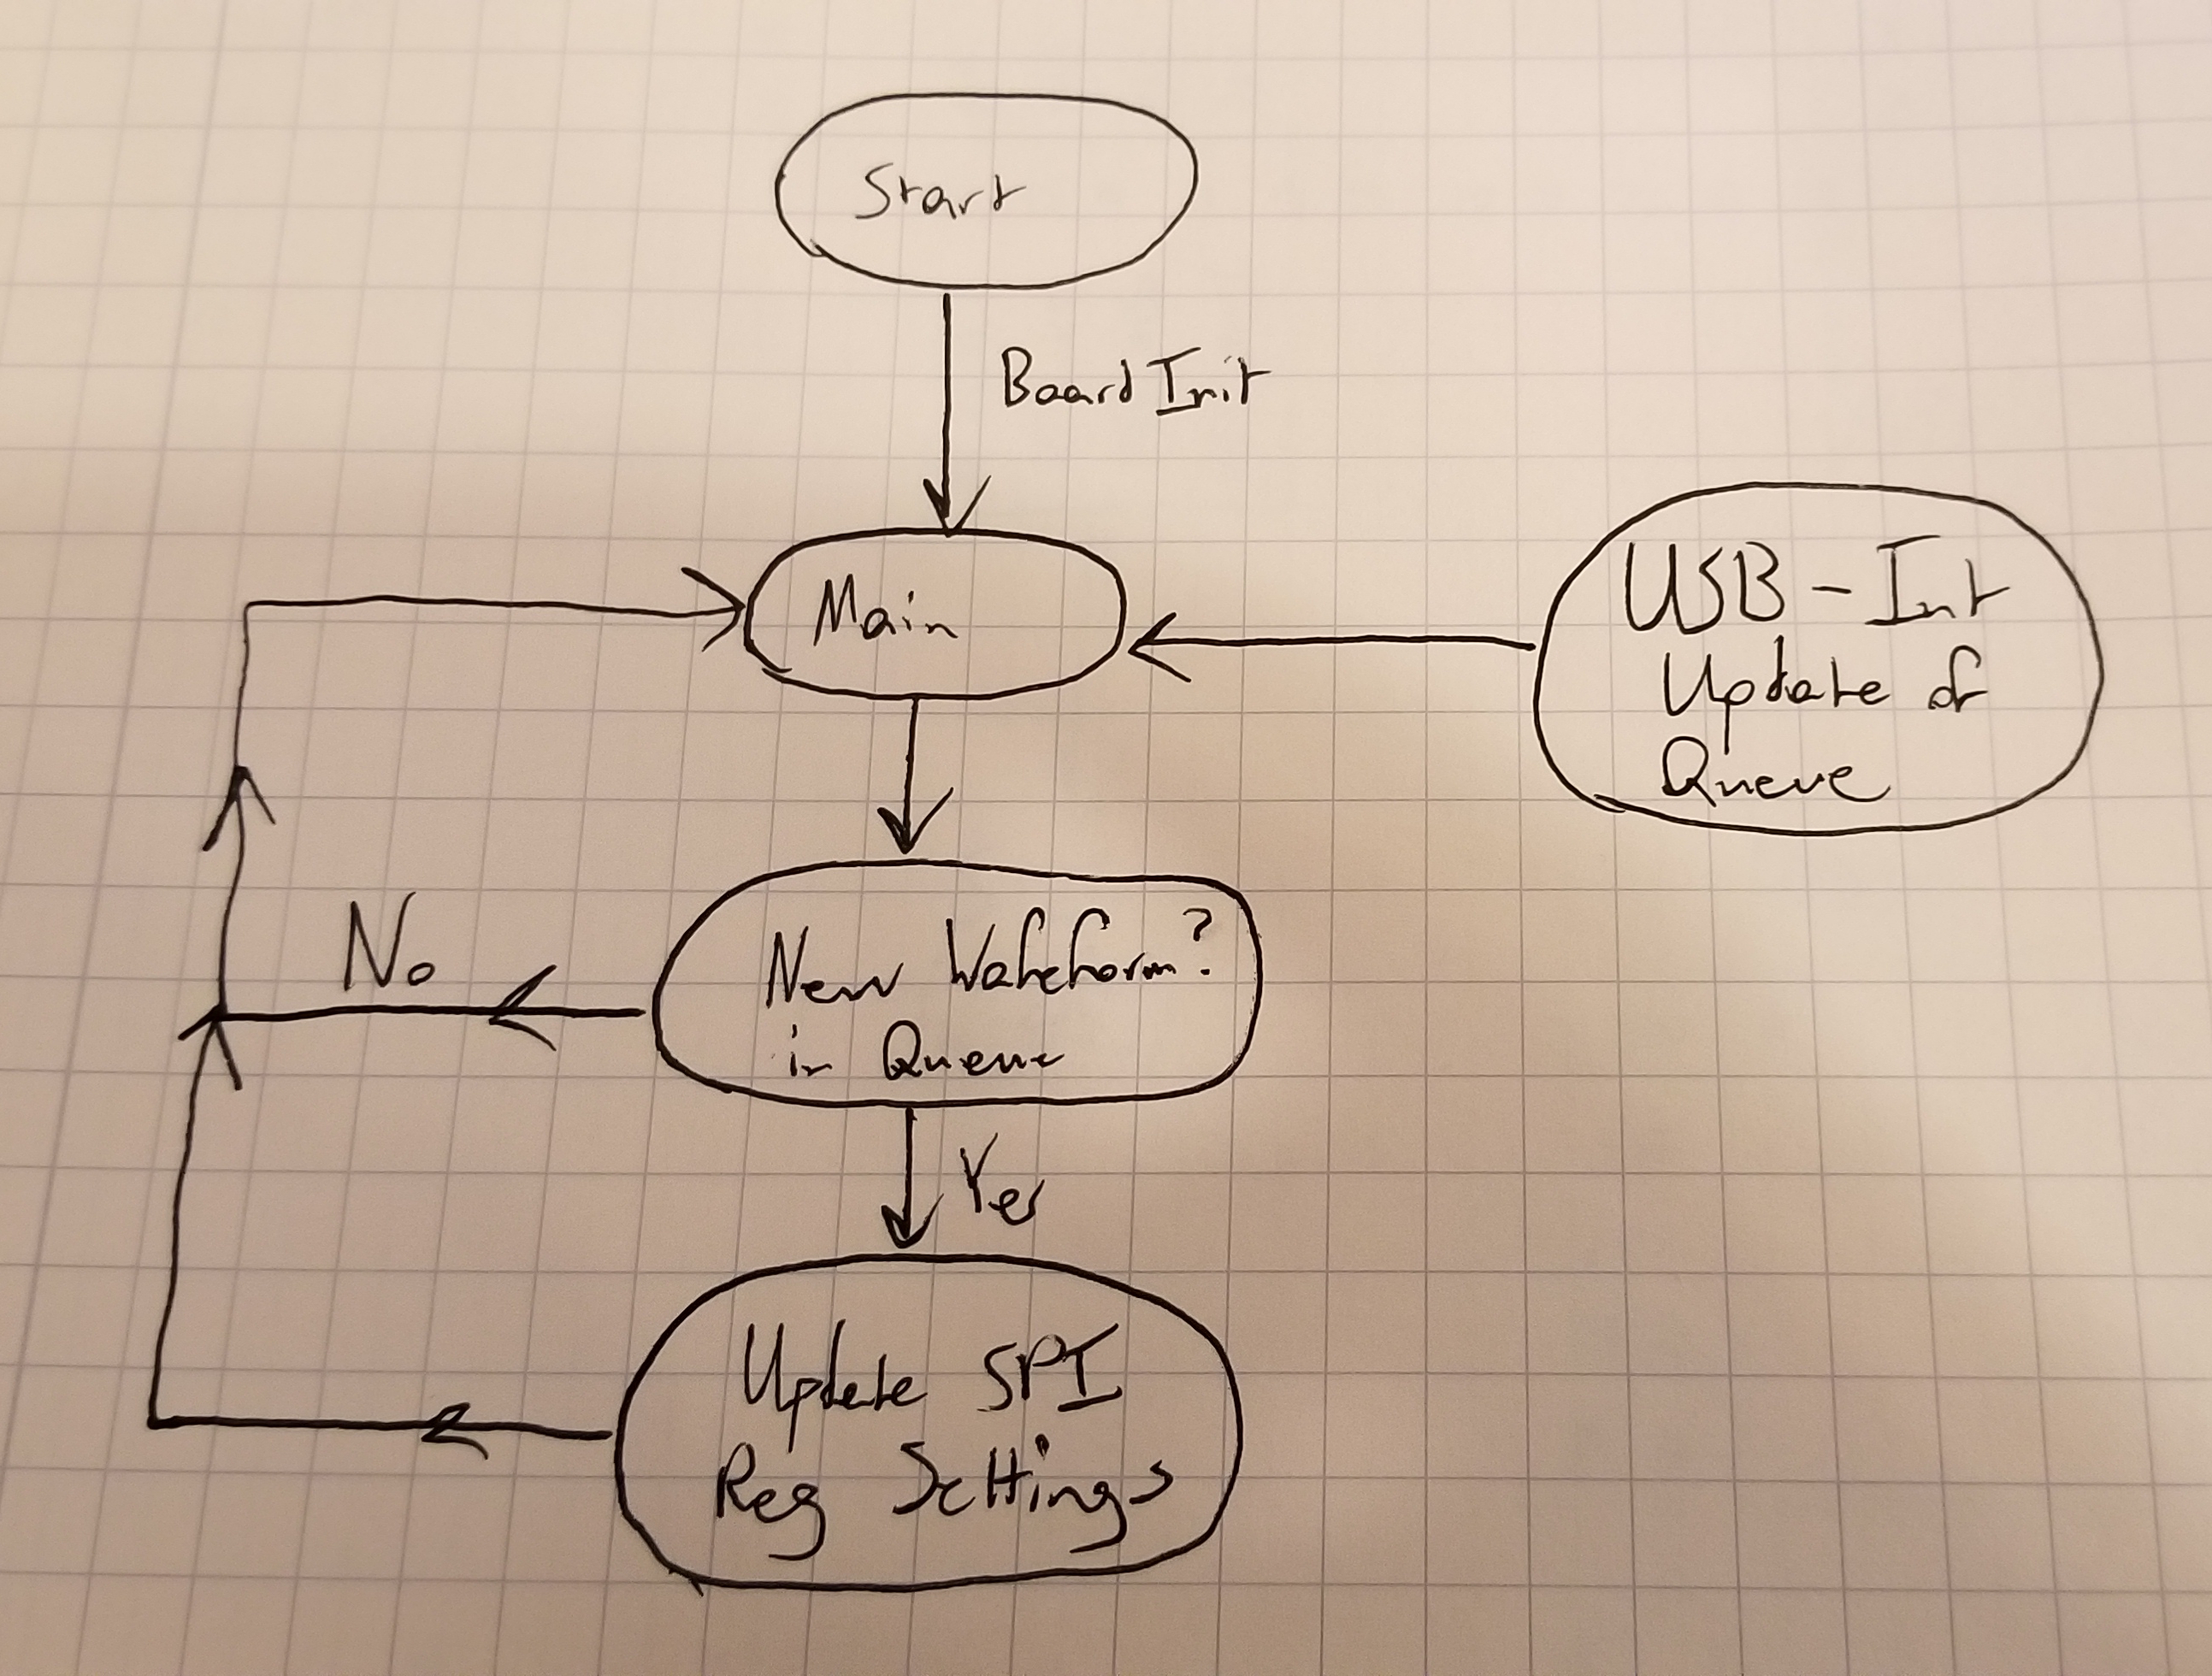 Start
Board Init
Main
USB - Int
Update of
Queue
No
New Waveform?
in Queue
Yes
Update SPI
Reg Settings